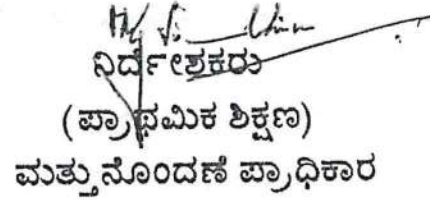 ನಿರ್ದೇಶಕರು
(ಪ್ರಾಥಮಿಕ ಶಿಕ್ಷಣ)
ಮತ್ತು ನೊಂದಣಿ ಪ್ರಾಧಿಕಾರ